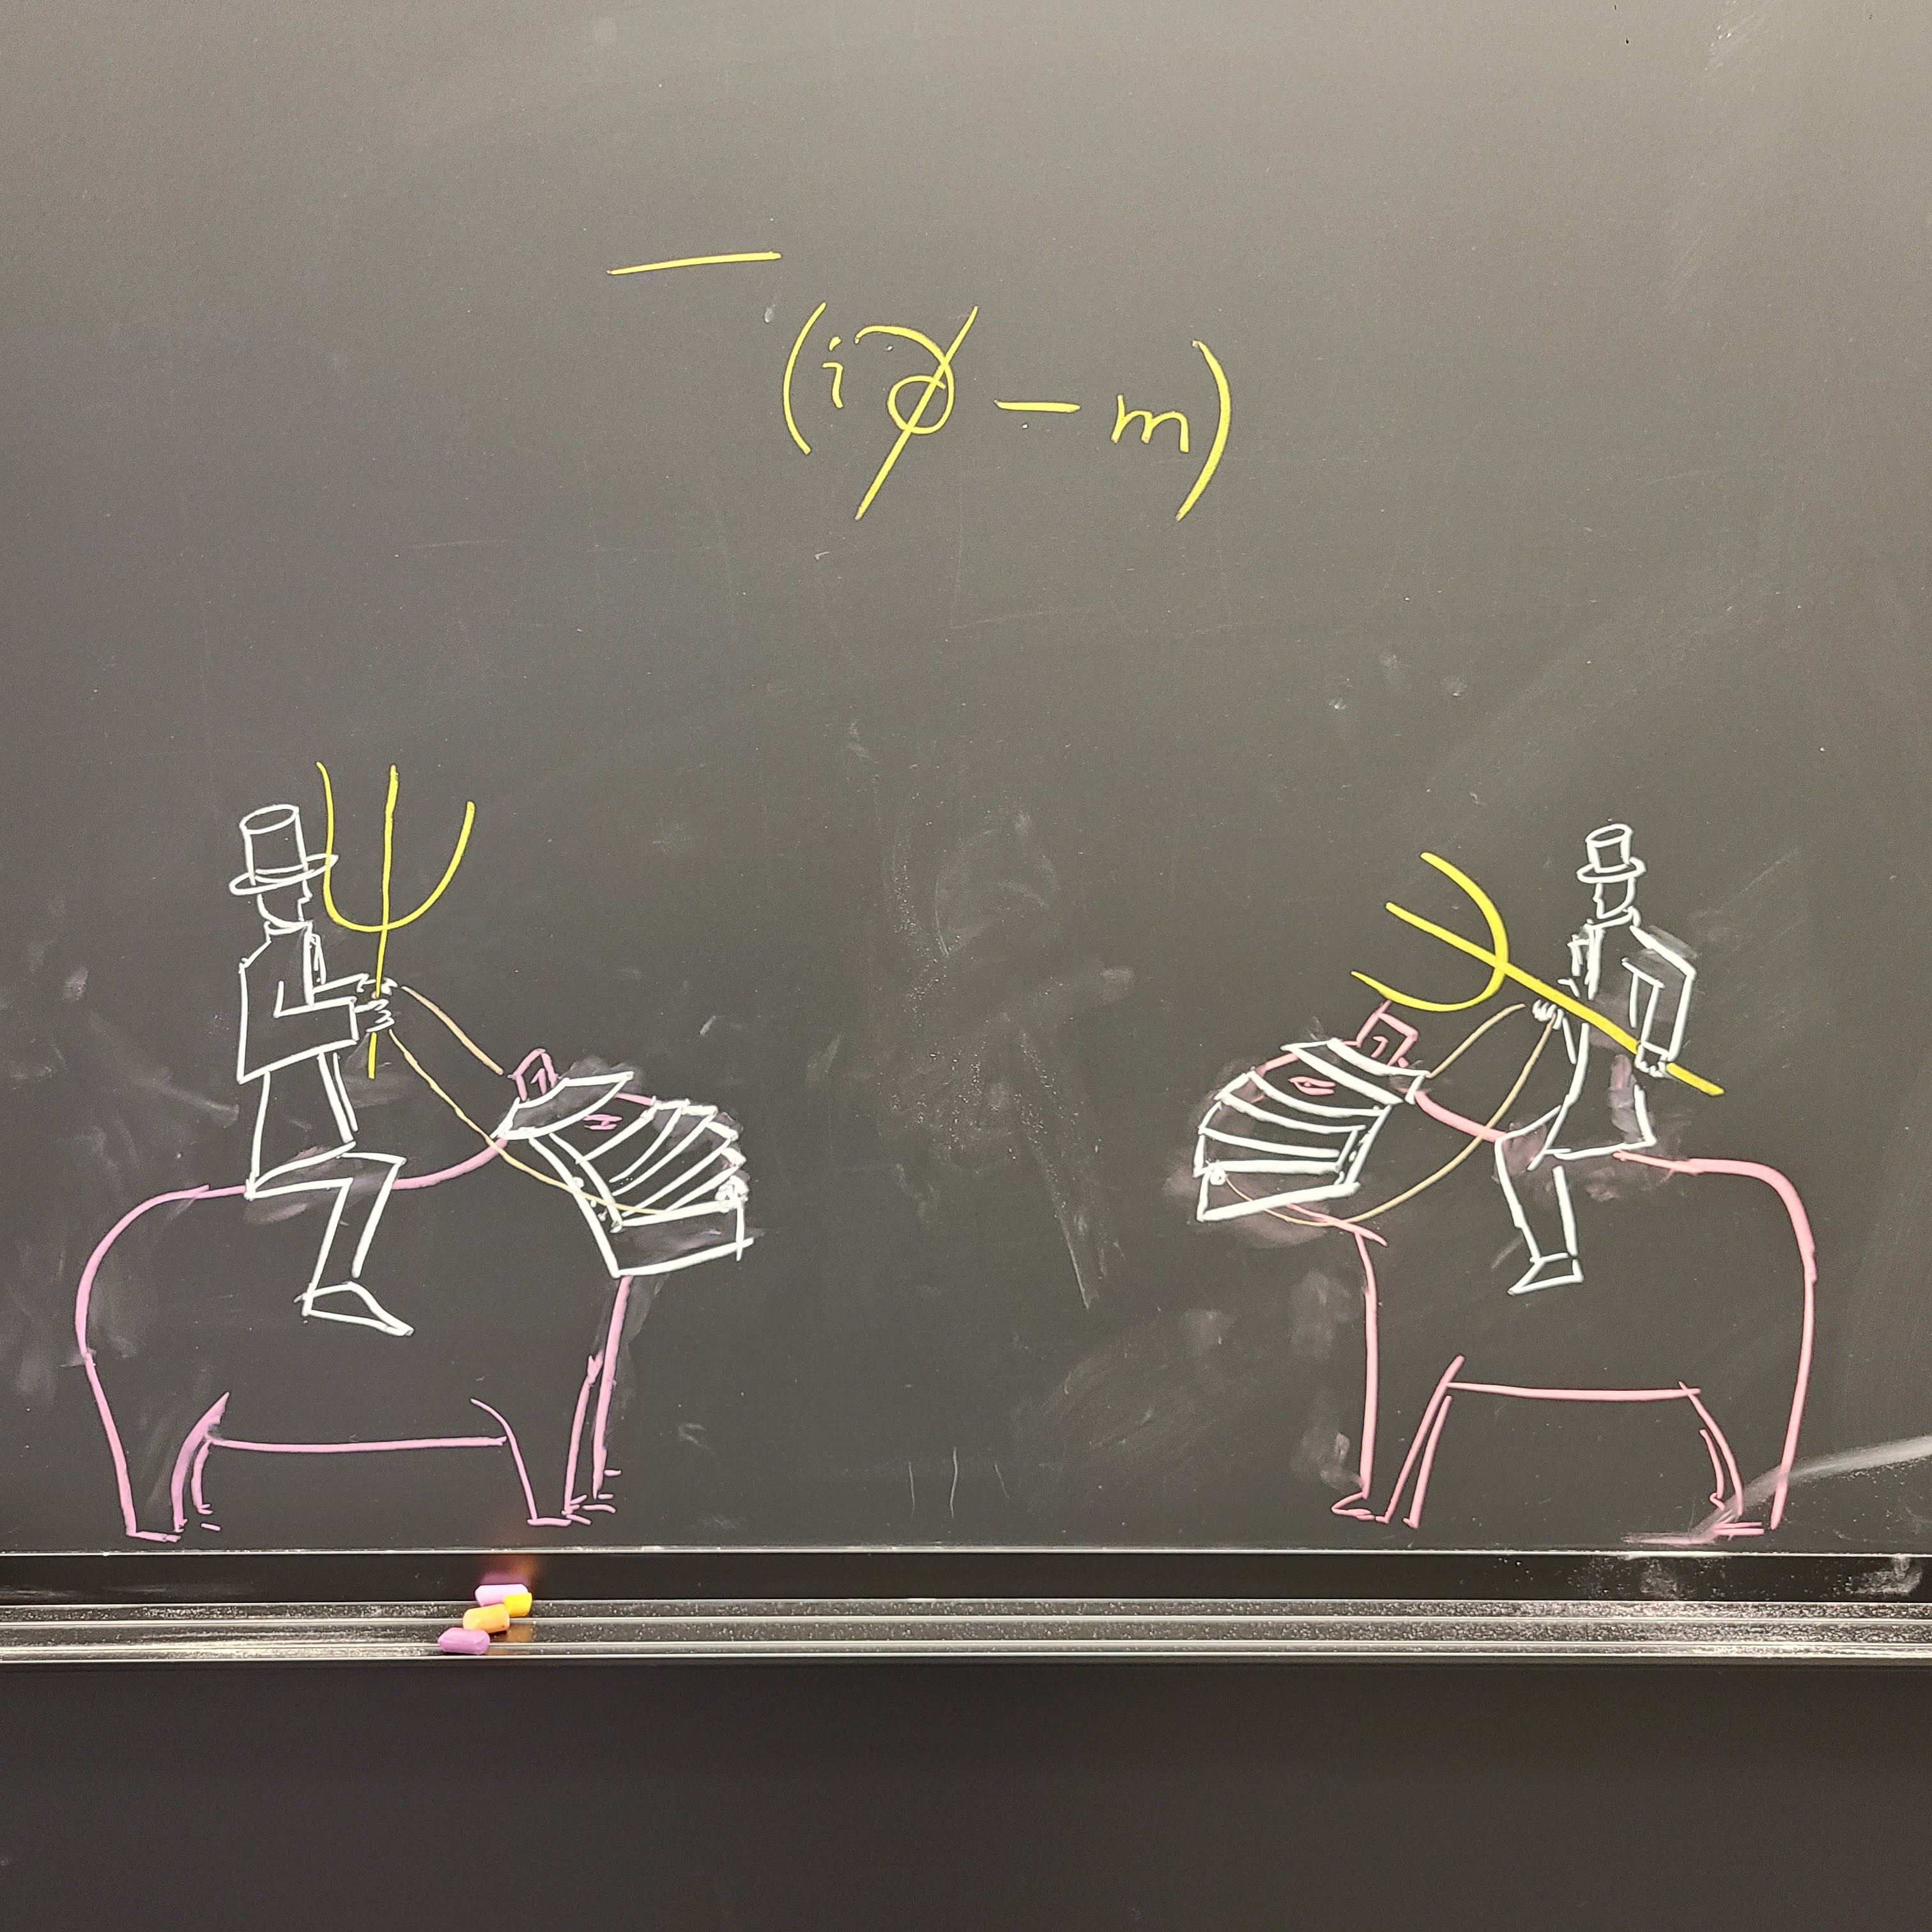 (i∂̸ - m)